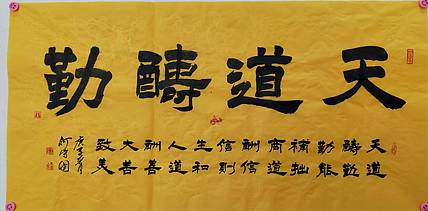 天道醻勤
天道
醻勤
勤能
補拙
商道
酬信
信則
生和
人道
酬善
大善
致美
庚子